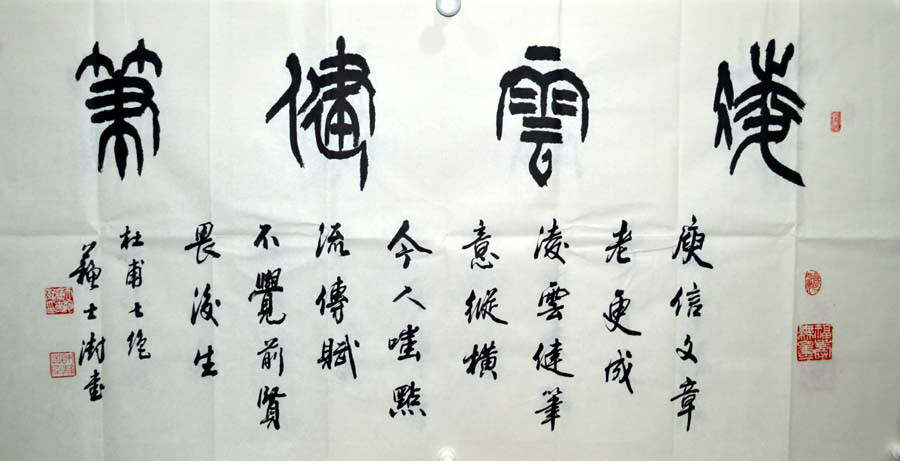 凌雲健筆
庾信文章
老更成
凌雲健筆
意縱横
今人嗤點
流傳賦
不覺前賢
畏後生
杜甫七绝
蘇士澍書